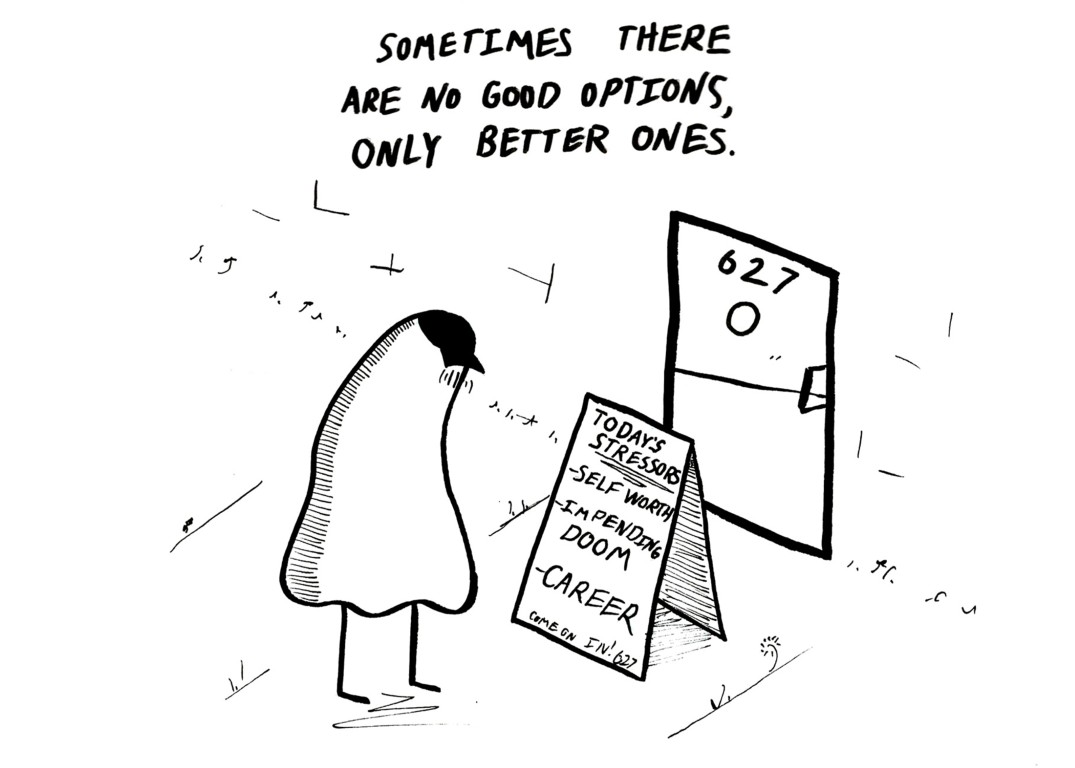 SOMETIMES THERE
ARE NO GOOD OPTIONS,
ONLY BETTER ONES.
627
TODAY'S
STRESSORS
-SELF WORTH
-IMPENDING
DOOM
-CAREER
COME ON IN! 627